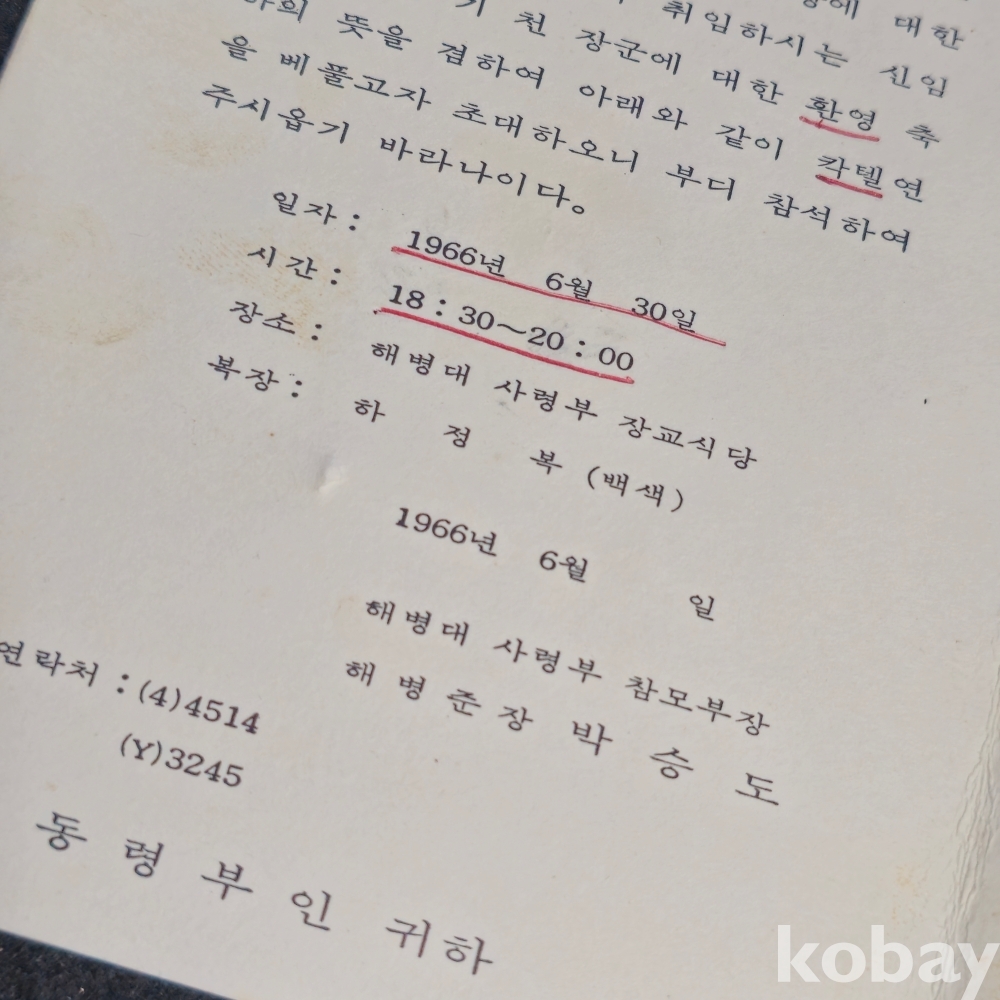 대한
취임하시는 신임
기 천 장군에 대한 환영 축
뜻을 겸하여 아래와 같이 칵텔연
을 베풀고자 초대하오니 부디 참석하여
주시옵기 바라나이다。
일자: 1966년 6월 30일
시간: 18:30~20:00
장소: 해병대 사령부 장교식당
복장: 하 정 복 (백색)
1966년 6월 일
해병대 사령부 참모부장
해병준장 박 승 도
연락처:(4)4514
(Y)3245
동령부인 귀하
kobay